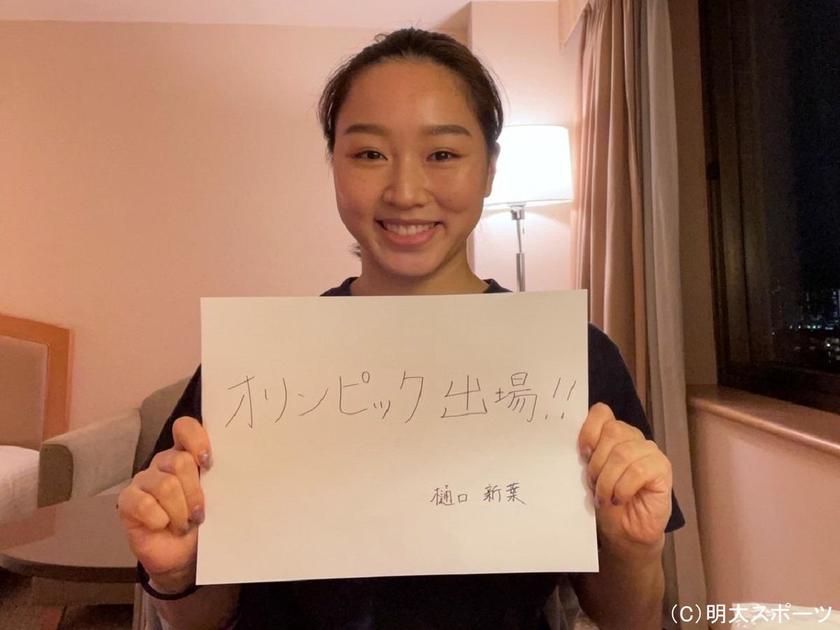 オリンピック出場!!
樋口 新葉
(C)明大スポーツ